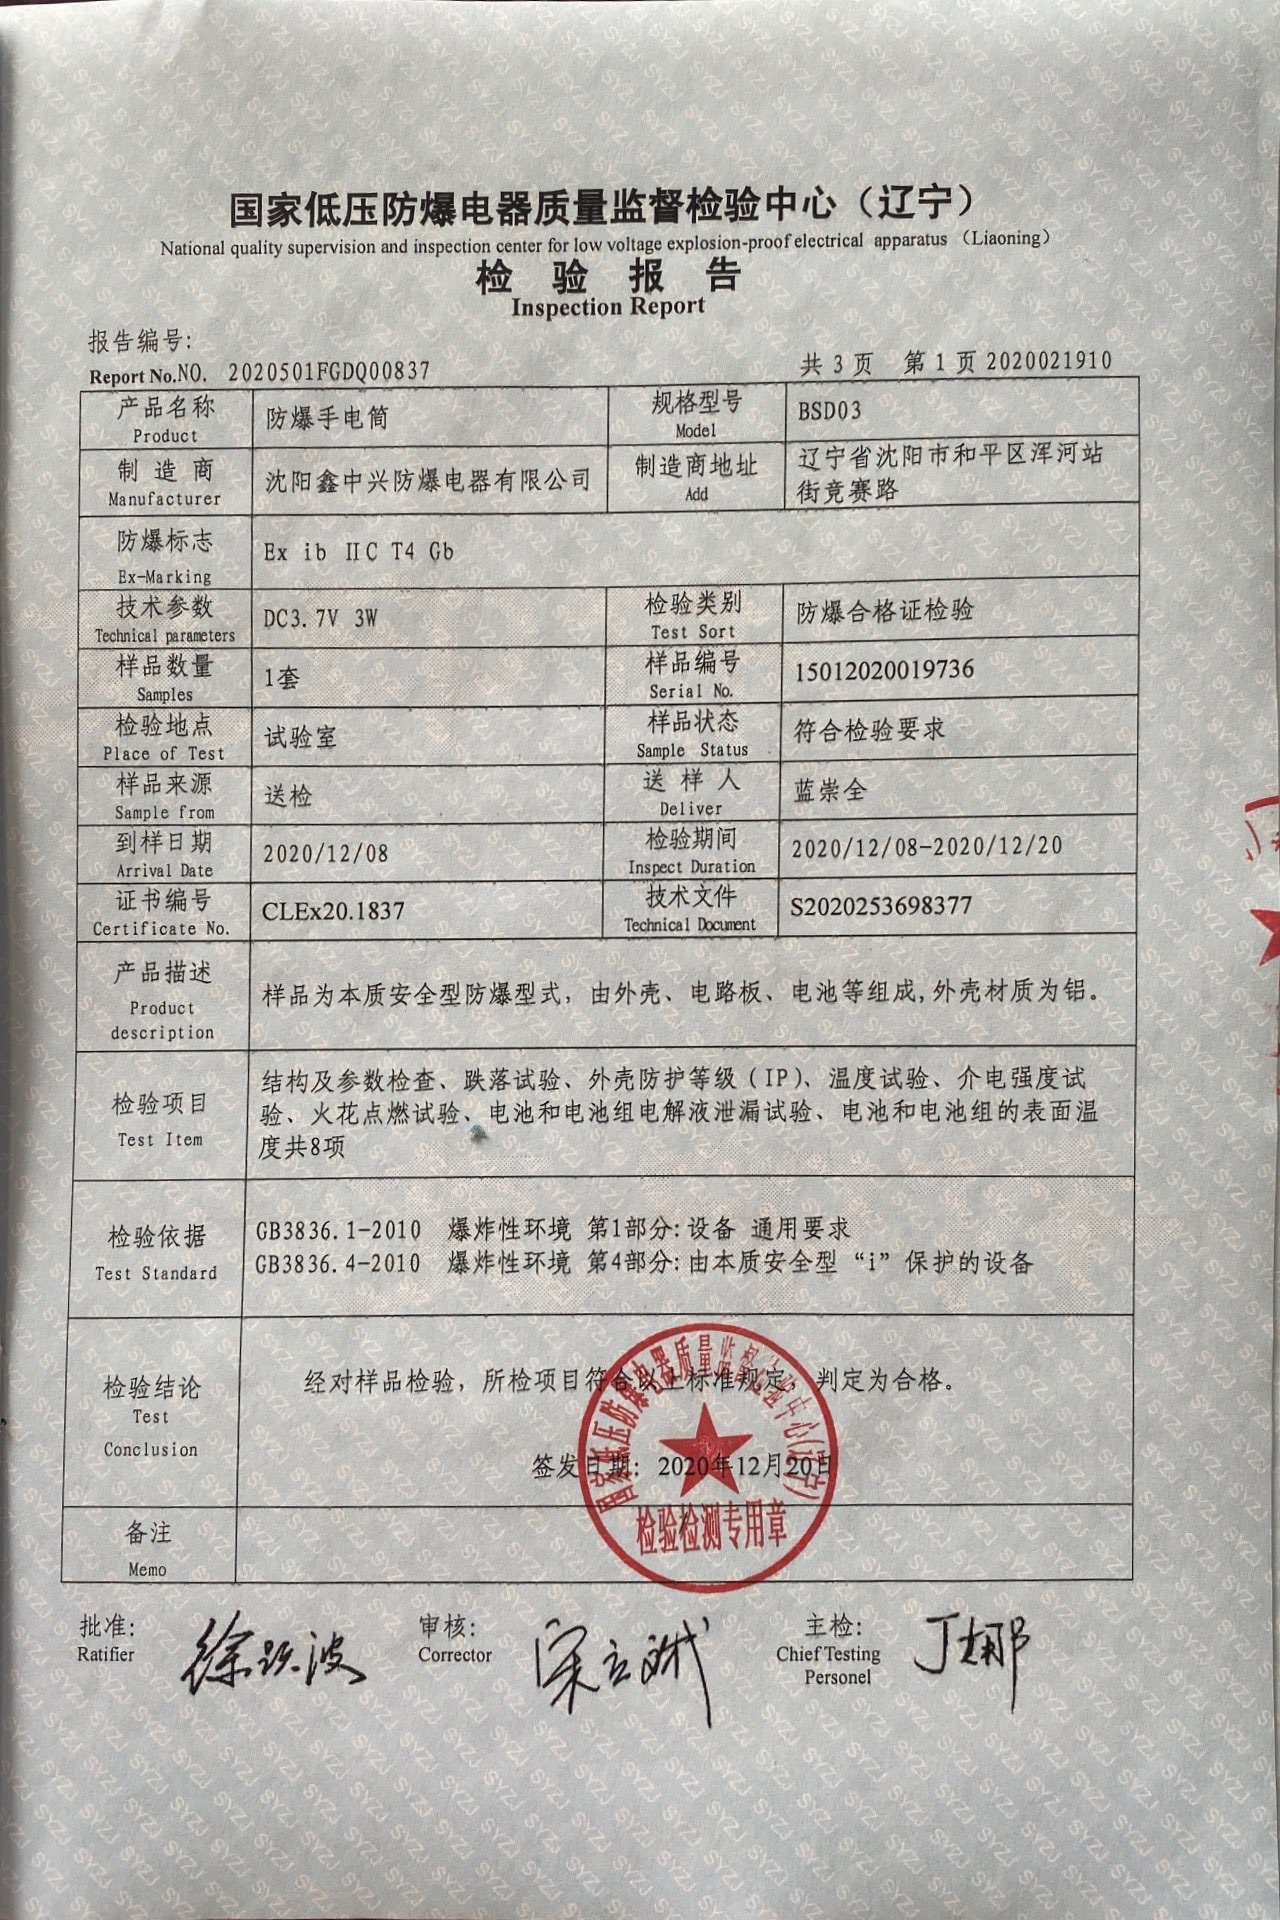 国家低压防爆电器质量监督检验中心（辽宁）
National quality supervision and inspection center for low voltage explosion-proof electrical apparatus （Liaoning）
检 验 报 告
Inspection Report
报告编号:
Report No.NO. 2020501FGDQ00837
共 3 页 第 1 页 2020021910
产品名称
Product
防爆手电筒
规格型号
Model
BSD03
制 造 商
Manufacturer
沈阳鑫中兴防爆电器有限公司
制造商地址
Add
辽宁省沈阳市和平区浑河站
街竞赛路
防爆标志
Ex-Marking
Ex ib ⅡC T4 Gb
技术参数
Technical parameters
DC3.7V 3W
检验类别
Test Sort
防爆合格证检验
样品数量
Samples
1套
样品编号
Serial No.
15012020019736
检验地点
Place of Test
试验室
样品状态
Sample Status
符合检验要求
样品来源
Sample from
送检
送 样 人
Deliver
蓝崇全
到样日期
Arrival Date
2020/12/08
检验期间
Inspect Duration
2020/12/08-2020/12/20
证书编号
Certificate No.
CLEx20.1837
技术文件
Technical Document
S2020253698377
产品描述
Product
description
样品为本质安全型防爆型式，由外壳、电路板、电池等组成,外壳材质为铝。
检验项目
Test Item
结构及参数检查、跌落试验、外壳防护等级（IP）、温度试验、介电强度试
验、火花点燃试验、电池和电池组电解液泄漏试验、电池和电池组的表面温
度共8项
检验依据
Test Standard
GB3836.1-2010 爆炸性环境 第1部分:设备 通用要求
GB3836.4-2010 爆炸性环境 第4部分:由本质安全型“i”保护的设备
检验结论
Test
Conclusion
经对样品检验，所检项目符合以上标准规定，判定为合格。
签发日期: 2020年12月20日
国家低压防爆电器质量监督检验中心(辽宁)
检验检测专用章
备注
Memo
批准:
Ratifier
徐跃波
审核:
Corrector
宋立斌
主检:
Chief Testing
Personel
丁娜